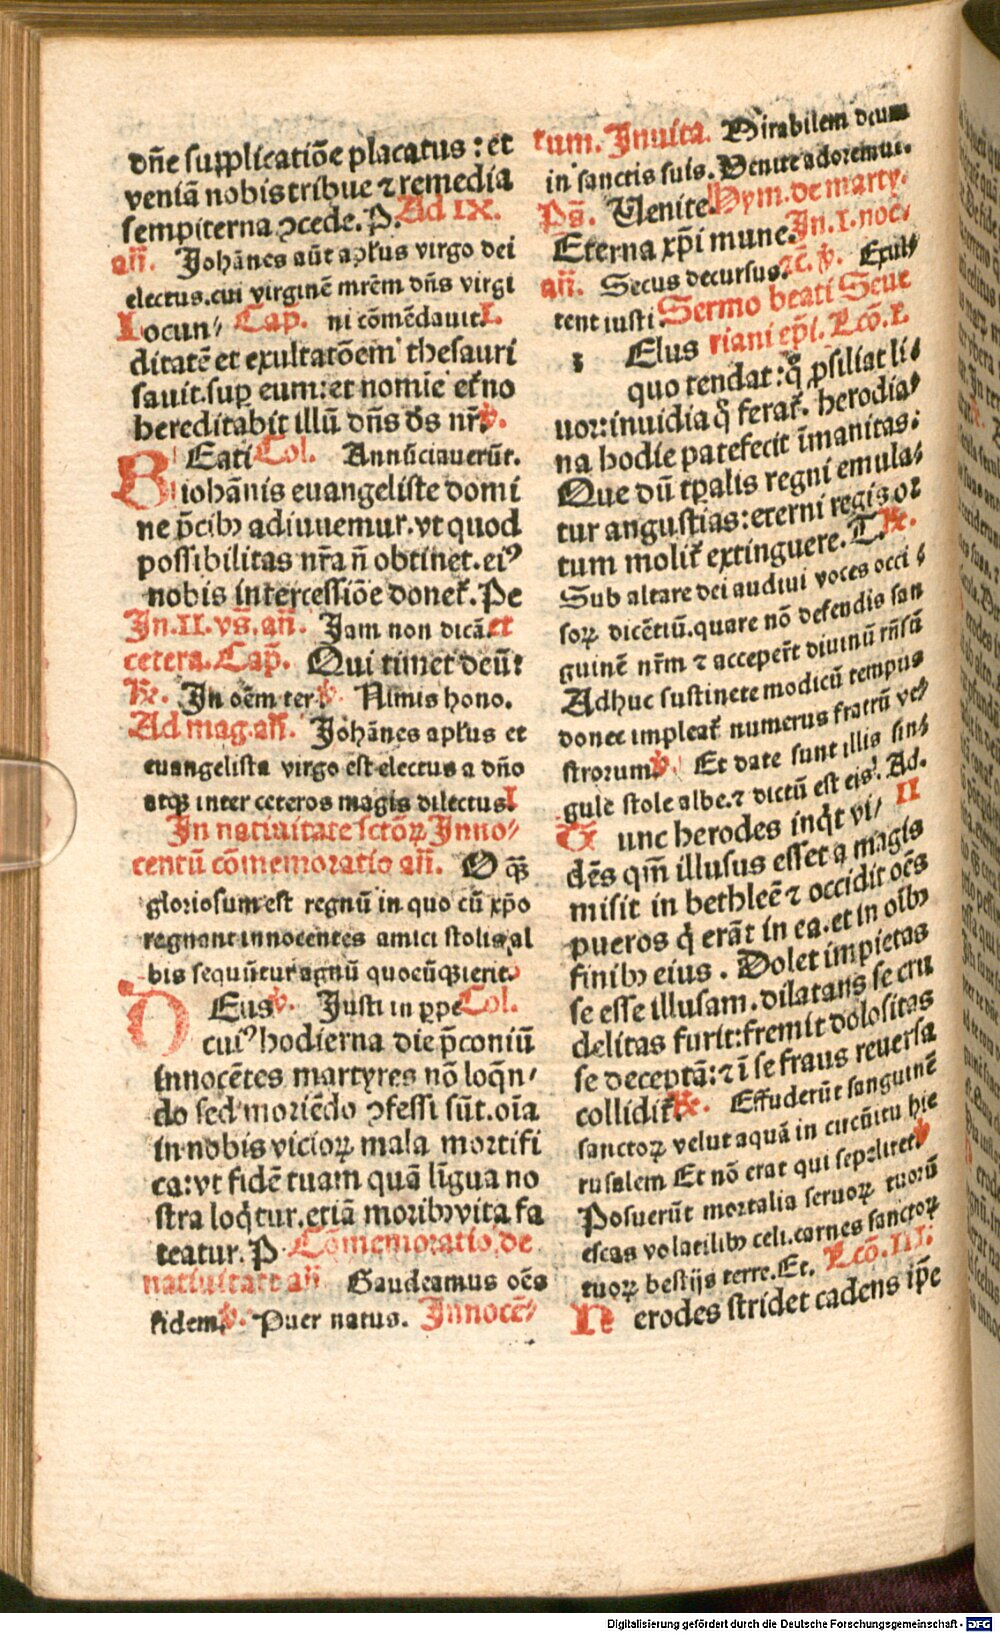 dñe supplicatiõe placatus : et
veniã nobis tribue ⁊ remedia
sempiterna ꝯcede. P. Ad IX.
añ. Johãnes aũt apl'us virgo dei
electus. cui virginẽ mrẽm dñs virgi
Iocun/ Cap. ni cõmẽdauit. I.
ditatẽ et exultatõem thesauri
sauit. sup eum: et nomie etẽno
hereditabit illũ dñs ds nr̃. ꝟ.
Eati Col. Annũciauerũt.
B iohãnis euangeliste domi
ne p̃cibꝫ adiuuemur. vt quod
possibilitas nr̃a ñ obtinet. eiꝰ
nobis intercessiõe donet̃. Pe
In. II. vs̃. añ. Jam non dicã. et
cetera. Cap̃. Qui timet deũ:
℞. In oẽm ter ꝟ Nimis hono.
Ad mag. añ. Johãnes apl'us et
euangelista virgo est electus a dño
atqꝫ inter ceteros magis dilectus. I
In natiuitate sctõꝝ Inno-
centũ cõmemoratio añ. O qꝫ
gloriosum est regnũ in quo cũ xp̃o
regnant innocentes amicti stolis al
bis sequũtur agnũ quocũqꝫ ierit.
D Eus ꝟ. Justi in ꝑpe Col.
cuiꝰ hodierna die p̃coniũ
innocẽtes martyres nõ loqñ/
do sed moriẽdo ꝯfessi sũt. oĩa
in nobis vicioꝝ mala mortifi
ca: vt fidẽ tuam quã lĩgua no
stra loq̃tur. etiã moribꝫ vita fa
teatur. P. Cõmemoratio de
natiuitate añ Gaudeamus oẽs
fidem. ꝟ. Puer natus. Innocẽ/
tum. Inuita. Mirabilem deum
in sanctis suis. Venite adoremus.
Ps̃. Uenite. Hym. de marty.
Eterna xp̃i mune. In. I. noc/
añ. Secus decursus. ⁊c̃. ꝟ. Exul/
tent iusti. Sermo beati Seue
Elus riani ep̃i. Lcõ. I.
z quo tendat: q̃ ꝓsiliat li/
uor: inuidia q̃ ferat̃. herodia/
na hodie patefecit ĩmanitas:
Que dũ tp̃alis regni emula/
tur angustias: eterni regis or
tum molit̃ extinguere. T. ℞.
Sub altare dei audiui voces occi/
soꝝ dicẽtiũ. quare nõ defendis san
guinẽ nr̃m ⁊ accepert̃ diuinũ rñsũ
Adhuc sustinete modicũ tempus
donec impleat̃ numerus fratrũ ve/
strorum. ꝟ. Et date sunt illis sin/
gule stole albe. ⁊ dictũ est eis. Ad.
T unc herodes inq̃t vi/ II
dẽs qm̃ illusus esset a magis
misit in bethleẽ ⁊ occidit oẽs
pueros q̃ erãt in ea. et in oĩbꝫ
finibꝫ eius. Dolet impietas
se esse illusam. dilatans se cru
delitas furit: fremit dolositas
se deceptã: ⁊ ĩ se fraus reuersa
collidit̃. ℞. Effuderũt sanguinẽ
sanctoꝝ velut aquã in circũitu hie
rusalem Et nõ erat qui sepeliret. ꝟ
Posuerũt mortalia seruoꝝ tuorũ
escas volatilibꝫ celi. carnes sanctoꝝ
tuoꝝ bestijs terre. Et. Lcõ. III.
H erodes stridet cadens ip̃e
Digitalisierung gefördert durch die Deutsche Forschungsgemeinschaft - DFG